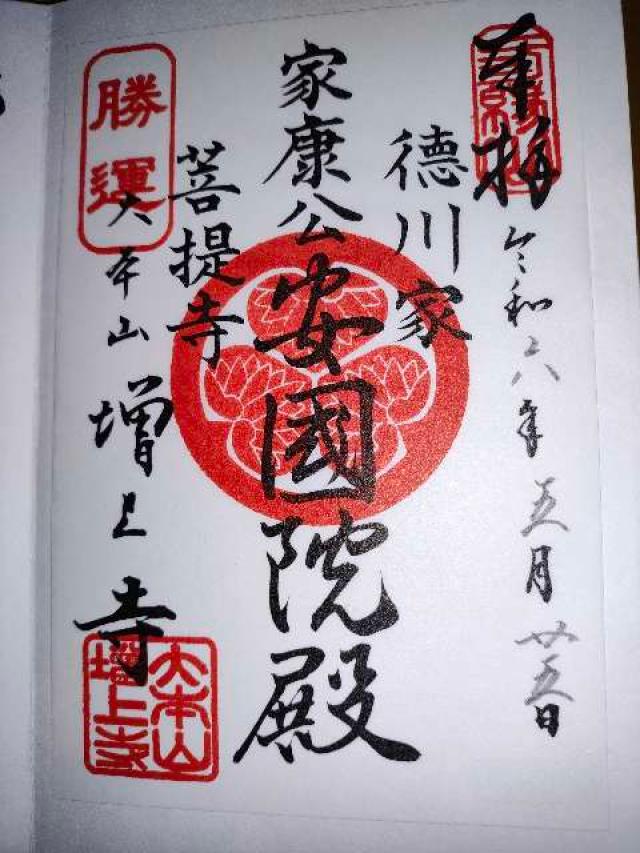 奉拝
令和六年五月廿五日
徳川家
家康公
安國院殿
菩提寺
勝運
大本山
増上寺
大本山
増上寺